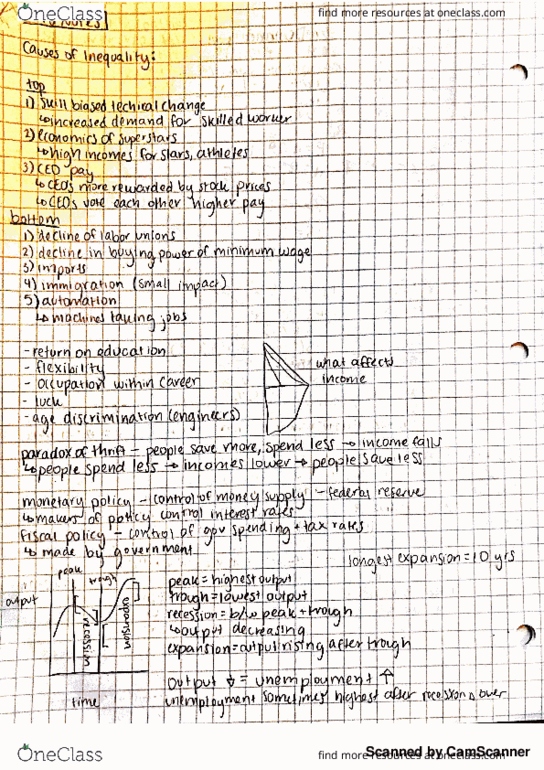 OneClass
find more resources at oneclass.com
Causes of Inequality:
top
1) Skill biased techical change
↳increased demand for skilled worker
2) economics of superstars
↳high incomes for stars, athletes
3) CEO pay
↳CEOs more rewarded by stock prices
↳CEOs vote each other higher pay
bottom
1) decline of labor unions
2) decline in buying power of minimum wage
3) imports
4) immigration (small impact)
5) automation
↳machines taking jobs
-return on education
- flexibility
- occupation within career
- luck
-age discrimination (engineers)
what affects
income
paradox of thrift - people save more, spend less → income falls
↳people spend less → incomes lower → people save less
monetary policy - control of money supply - federal reserve
↳makers of policy control interest rates
fiscal policy - control of gov spending + tax rates
↳ made by government
longest expansion = 10 yrs
peak
trough
output
recession
expansion
time
peak = highest output
trough = lowest output
recession = b/w peak + trough
↳output decreasing
expansion = output rising after trough
output ↓ = unemployment ↑
unemployment sometimes highest after recession over
OneClass
find more resources at oneclass.com
Scanned by CamScanner